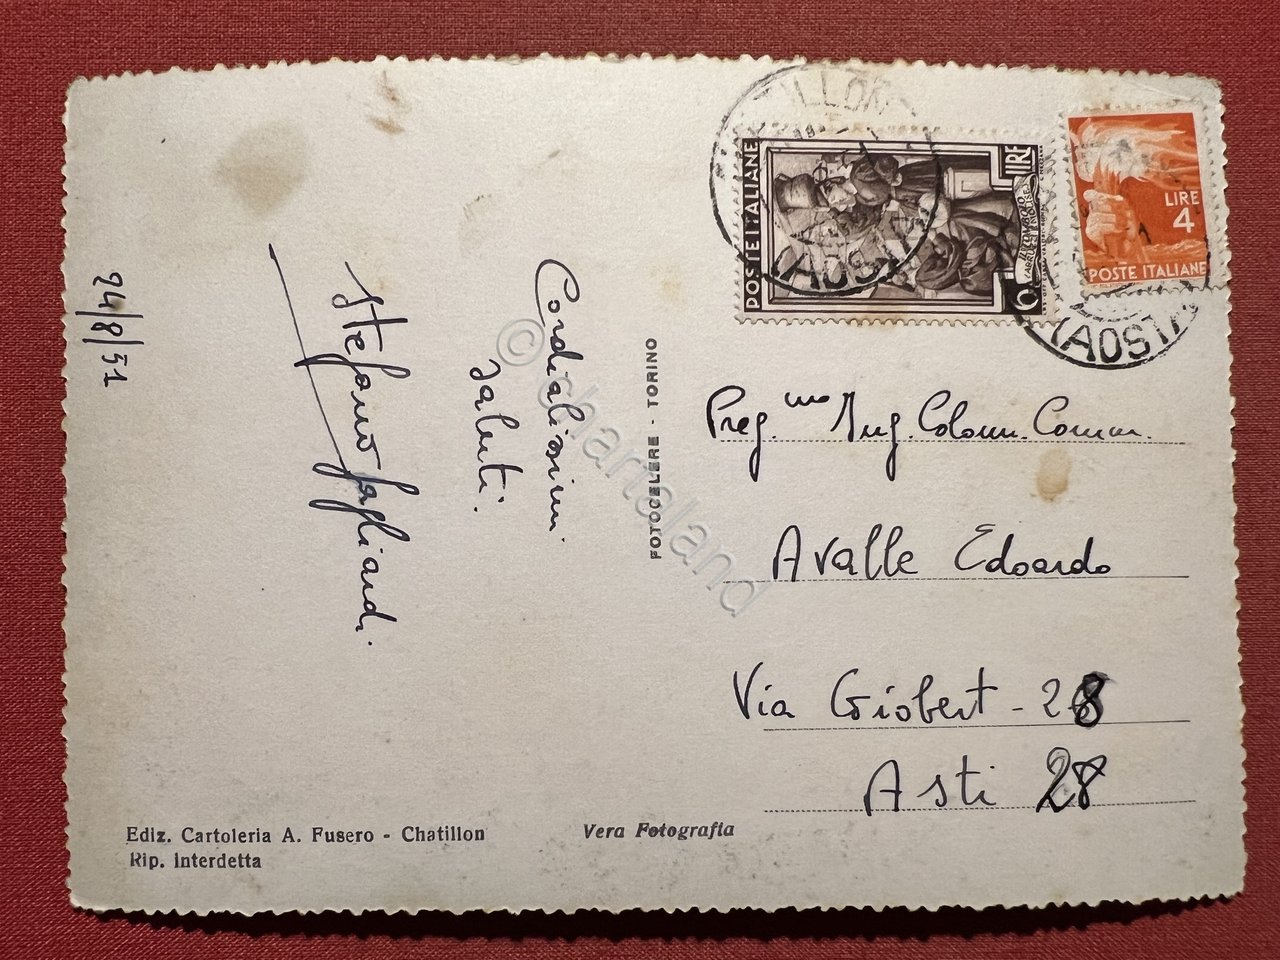 24/8/51
Stefano Gagliardi
Cordialissimi
saluti.
FOTOCELERE - TORINO
POSTE ITALIANE
LIRE
6
LIRE
4
POSTE ITALIANE
(AOSTA)
(AOSTA)
Preg.mo Ing. Colonn. Comm.
Avalle Edoardo
Via Giobert - 28
Asti 28
Ediz. Cartoleria A. Fusero - Chatillon
Rip. interdetta
Vera Fotografia
© chartaland